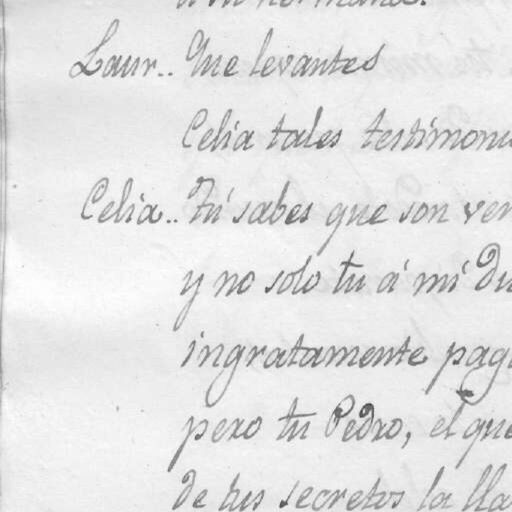 Laur.. Que levantes
Celia tales testimoni
Celia.. Tú sabes que son ver
y no solo tu á mí du
ingratamente pag
pero tu Pedro, el que
de tus secretos la lla